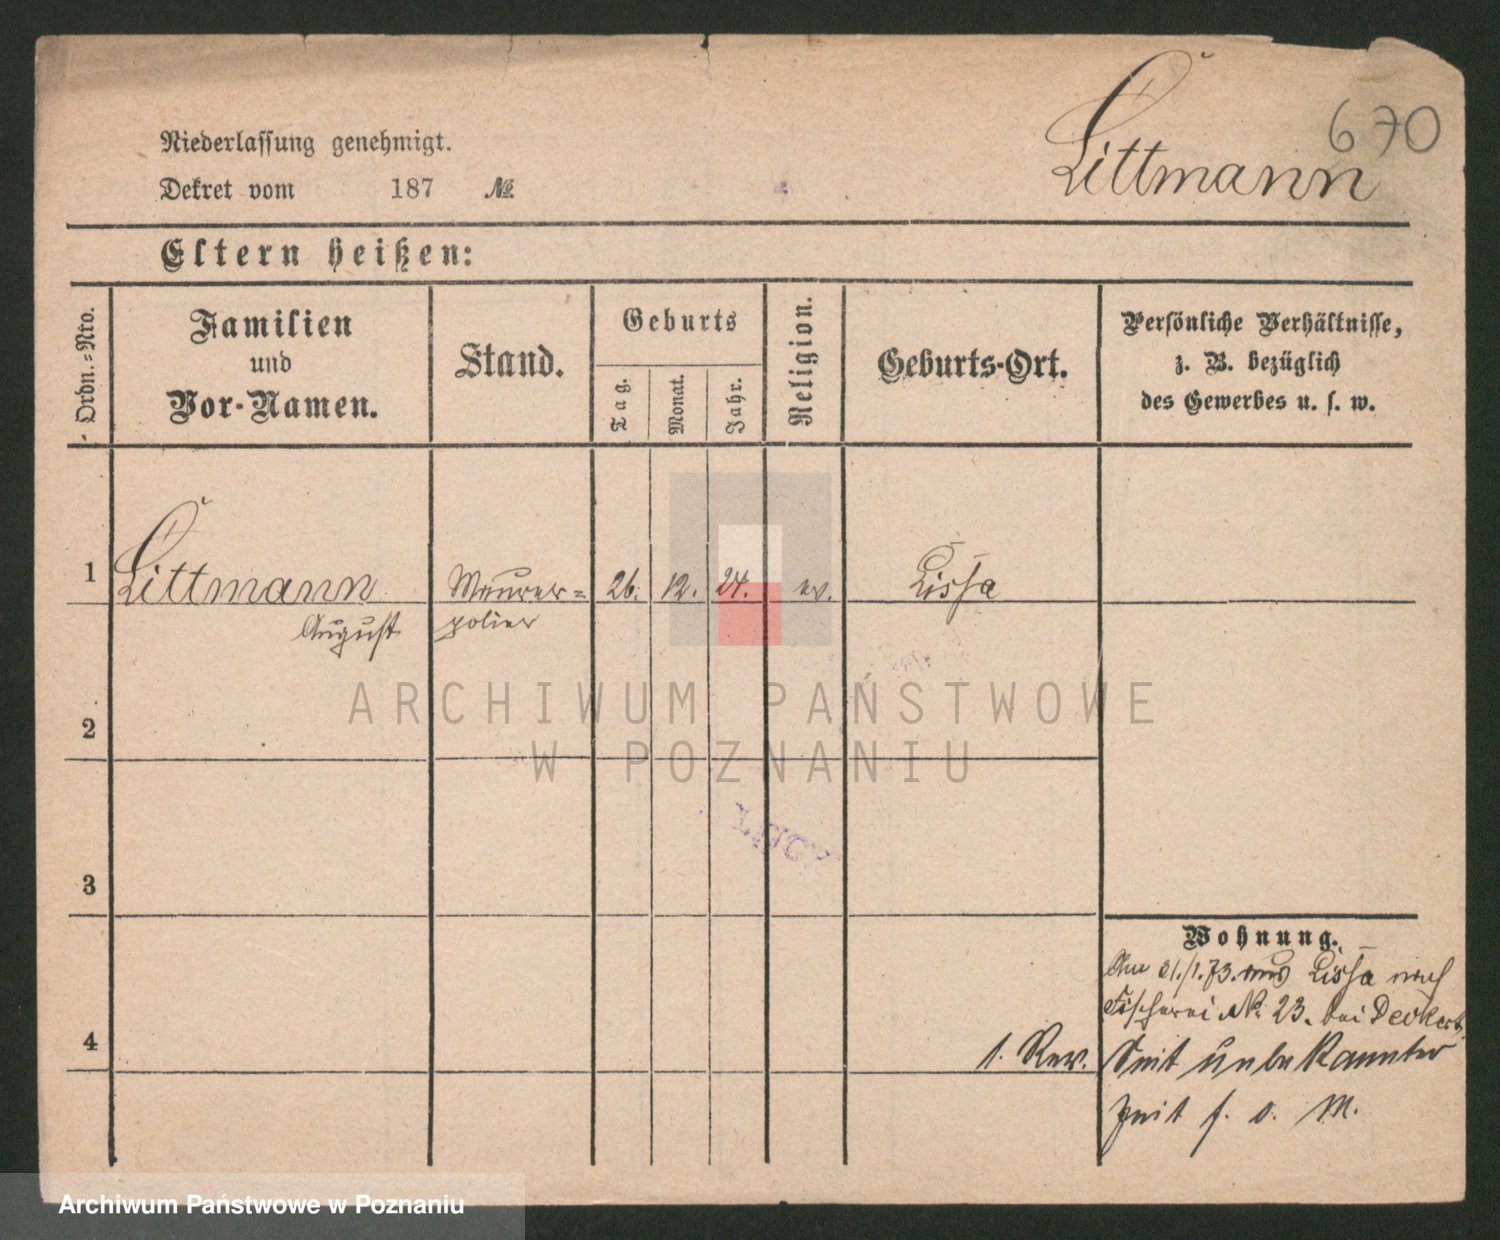 670
Littmann
Niederlassung genehmigt.
Dekret vom 187 №.
Eltern heißen:
Ordn.=Nro.
Familien
und
Vor-Namen.
Stand.
Geburts
Tag.
Monat.
Jahr.
Religion.
Geburts-Ort.
Persönliche Verhältnisse,
z. B. bezüglich
des Gewerbes u. s. w.
1 Littmann Maurer= 26. 12. 24. ev. Lissa
August polier
2
3
4
Wohnung.
Am 21./1.73. aus Lissa nach
Fischerei №. 23. bei Deckert
1. Rev. Seit unbekannter
Zeit f. o. M.
ARCHIWUM PAŃSTWOWE
W POZNANIU
Archiwum Państwowe w Poznaniu